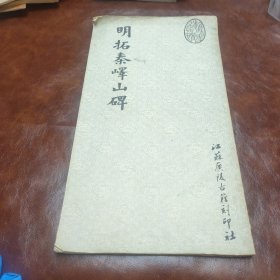 明拓秦嶧山碑
江苏广陵古籍刻印社